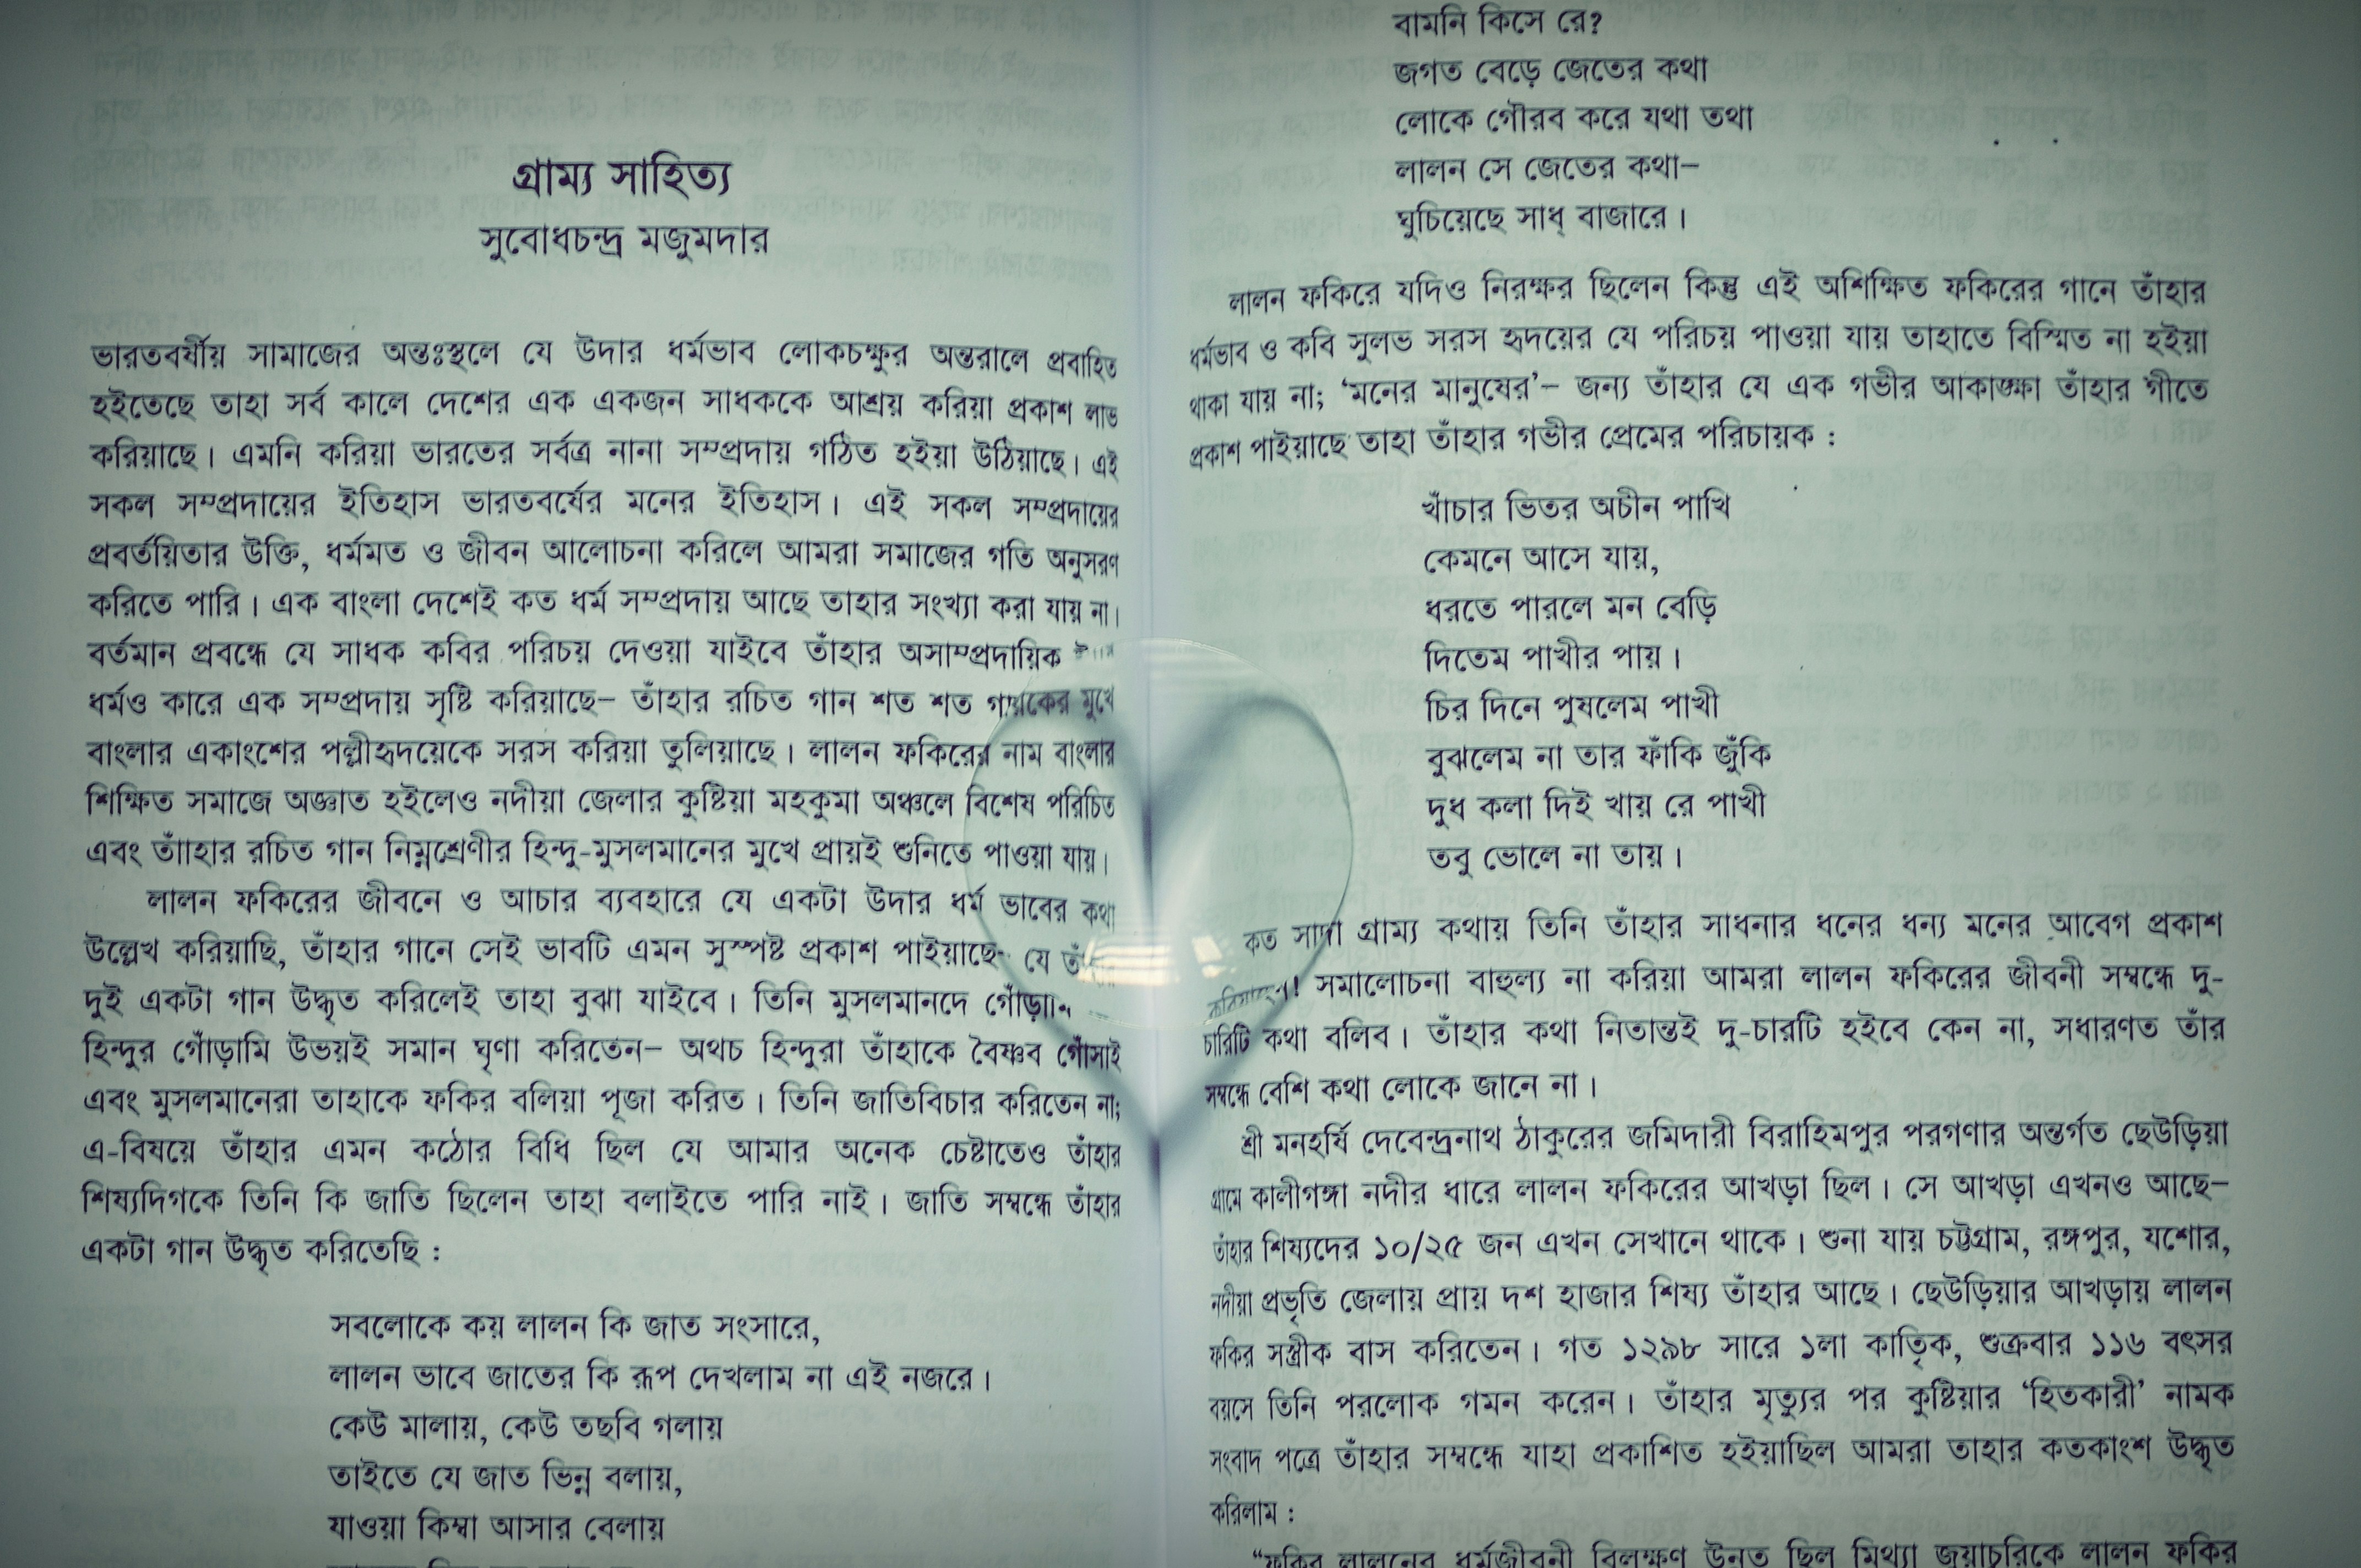 গ্রাম্য সাহিত্য
সুবোধচন্দ্র মজুমদার
ভারতবর্ষীয় সামাজের অন্তঃস্থলে যে উদার ধর্মভাব লোকচক্ষুর অন্তরালে প্রবাহিত
হইতেছে তাহা সর্ব কালে দেশের এক একজন সাধককে আশ্রয় করিয়া প্রকাশ লাভ
করিয়াছে। এমনি করিয়া ভারতের সর্বত্র নানা সম্প্রদায় গঠিত হইয়া উঠিয়াছে। এই
সকল সম্প্রদায়ের ইতিহাস ভারতবর্ষের মনের ইতিহাস। এই সকল সম্প্রদায়ের
প্রবর্তয়িতার উক্তি, ধর্মমত ও জীবন আলোচনা করিলে আমরা সমাজের গতি অনুসরণ
করিতে পারি। এক বাংলা দেশেই কত ধর্ম সম্প্রদায় আছে তাহার সংখ্যা করা যায় না।
বর্তমান প্রবন্ধে যে সাধক কবির পরিচয় দেওয়া যাইবে তাঁহার অসাম্প্রদায়িক
ধর্মও কারে এক সম্প্রদায় সৃষ্টি করিয়াছে– তাঁহার রচিত গান শত শত গায়কের মুখে
বাংলার একাংশের পল্লীহৃদয়েকে সরস করিয়া তুলিয়াছে। লালন ফকিরের নাম বাংলার
শিক্ষিত সমাজে অজ্ঞাত হইলেও নদীয়া জেলার কুষ্টিয়া মহকুমা অঞ্চলে বিশেষ পরিচিত
এবং তাঁাহার রচিত গান নিম্নশ্রেণীর হিন্দু-মুসলমানের মুখে প্রায়ই শুনিতে পাওয়া যায়।
লালন ফকিরের জীবনে ও আচার ব্যবহারে যে একটা উদার ধর্ম ভাবের কথা
উল্লেখ করিয়াছি, তাঁহার গানে সেই ভাবটি এমন সুস্পষ্ট প্রকাশ পাইয়াছে যে
দুই একটা গান উদ্ধৃত করিলেই তাহা বুঝা যাইবে। তিনি মুসলমানদে
হিন্দুর গোঁড়ামি উভয়ই সমান ঘৃণা করিতেন– অথচ হিন্দুরা তাঁহাকে বৈষ্ণব গোঁসাই
এবং মুসলমানেরা তাহাকে ফকির বলিয়া পূজা করিত। তিনি জাতিবিচার করিতেন না;
এ-বিষয়ে তাঁহার এমন কঠোর বিধি ছিল যে আমার অনেক চেষ্টাতেও তাঁহার
শিষ্যদিগকে তিনি কি জাতি ছিলেন তাহা বলাইতে পারি নাই। জাতি সম্বন্ধে তাঁহার
একটা গান উদ্ধৃত করিতেছি :
সবলোকে কয় লালন কি জাত সংসারে,
লালন ভাবে জাতের কি রূপ দেখলাম না এই নজরে।
কেউ মালায়, কেউ তছবি গলায়
তাইতে যে জাত ভিন্ন বলায়,
যাওয়া কিম্বা আসার বেলায়
বামনি কিসে রে?
জগত বেড়ে জেতের কথা
লোকে গৌরব করে যথা তথা
লালন সে জেতের কথা–
ঘুচিয়েছে সাধ্ বাজারে।
লালন ফকিরে যদিও নিরক্ষর ছিলেন কিন্তু এই অশিক্ষিত ফকিরের গানে তাঁহার
ধর্মভাব ও কবি সুলভ সরস হৃদয়ের যে পরিচয় পাওয়া যায় তাহাতে বিস্মিত না হইয়া
থাকা যায় না; ‘মনের মানুষের’– জন্য তাঁহার যে এক গভীর আকাঙ্ক্ষা তাঁহার গীতে
প্রকাশ পাইয়াছে তাহা তাঁহার গভীর প্রেমের পরিচায়ক :
খাঁচার ভিতর অচীন পাখি
কেমনে আসে যায়,
ধরতে পারলে মন বেড়ি
দিতেম পাখীর পায়।
চির দিনে পুষলেম পাখী
বুঝলেম না তার ফাঁকি জুঁকি
দুধ কলা দিই খায় রে পাখী
তবু ভোলে না তায়।
কত সাদা গ্রাম্য কথায় তিনি তাঁহার সাধনার ধনের ধন্য মনের আবেগ প্রকাশ
সমালোচনা বাহুল্য না করিয়া আমরা লালন ফকিরের জীবনী সম্বন্ধে দু-
চারিটি কথা বলিব। তাঁহার কথা নিতান্তই দু-চারটি হইবে কেন না, সধারণত তাঁর
সম্বন্ধে বেশি কথা লোকে জানে না।
শ্রী মনহর্ষি দেবেন্দ্রনাথ ঠাকুরের জমিদারী বিরাহিমপুর পরগণার অন্তর্গত ছেউড়িয়া
গ্রামে কালীগঙ্গা নদীর ধারে লালন ফকিরের আখড়া ছিল। সে আখড়া এখনও আছে–
তাঁহার শিষ্যদের ১০/২৫ জন এখন সেখানে থাকে। শুনা যায় চট্টগ্রাম, রঙ্গপুর, যশোর,
নদীয়া প্রভৃতি জেলায় প্রায় দশ হাজার শিষ্য তাঁহার আছে। ছেউড়িয়ার আখড়ায় লালন
ফকির সস্ত্রীক বাস করিতেন। গত ১২৯৮ সারে ১লা কার্তিক, শুক্রবার ১১৬ বৎসর
বয়সে তিনি পরলোক গমন করেন। তাঁহার মৃত্যুর পর কুষ্টিয়ার ‘হিতকারী’ নামক
সংবাদ পত্রে তাঁহার সম্বন্ধে যাহা প্রকাশিত হইয়াছিল আমরা তাহার কতকাংশ উদ্ধৃত
করিলাম :
“ফকির লালনের ধর্মজীবনী বিলক্ষণ উন্নত ছিল মিথ্যা জুয়াচরিকে লালন ফকির